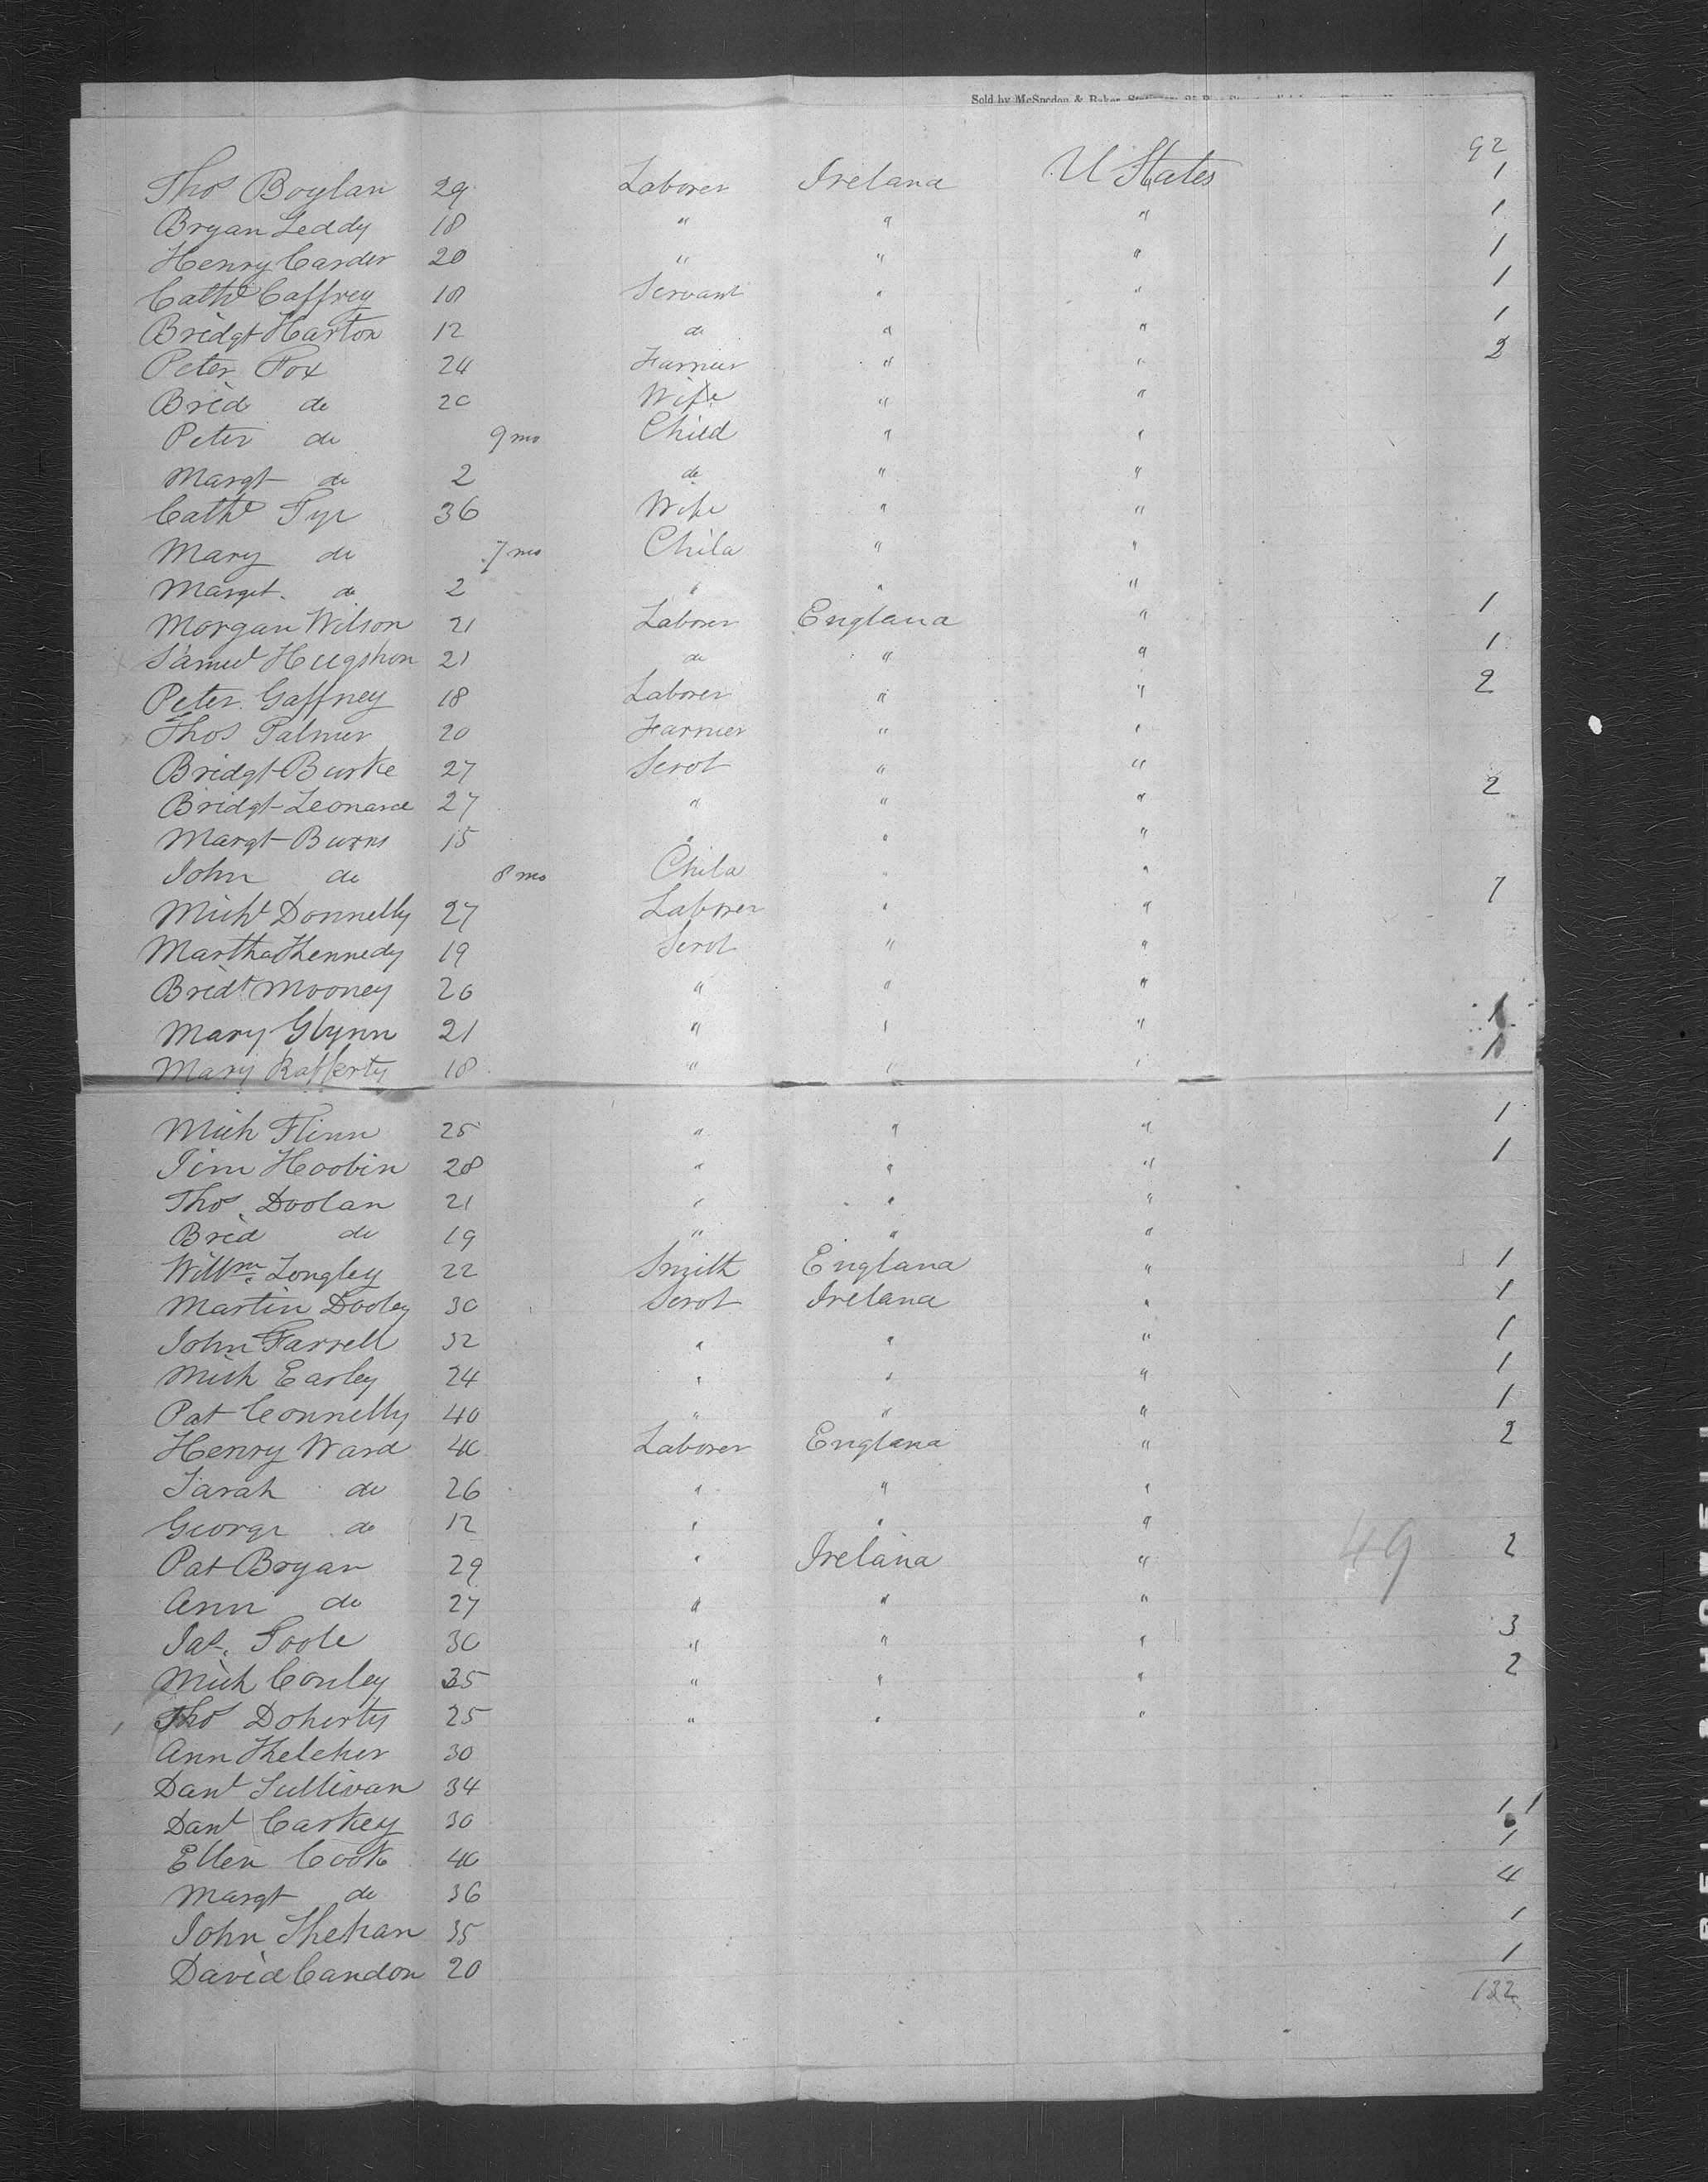 Sold by McSpedon & Baker, Stationers, 25 Pine
92
Thos Boylan 29 Laborer Ireland U States 1
Bryan Leddy 18 " " " 1
Henry Carder 20 " " " 1
Cathe Caffrey 18 Servant " " 1
Bridgt Harton 12 do " " 1
Peter Fox 24 Farmer " " 2
Brid do 20 Wife " "
Peter do 9 mo Child " "
Margt do 2 do " "
Cathe Pye 36 Wife " "
Mary do 7 mo Child " "
Margt. do 2 " " "
Morgan Wilson 21 Laborer England " 1
Samul Hugshon 21 do " " 1
Peter Gaffney 18 Laborer " " 2
Thos Palmer 20 Farmer " "
Bridgt Burke 27 Servt " "
Bridgt Leonard 27 " " " 2
Margt Burns 15 " " "
John do 8 mo Child " "
Michl Donnelly 27 Laborer " " 7
Martha Kennedy 19 Servt " "
Bridt Mooney 26 " " "
Mary Glynn 21 " " " 1
Mary Rafferty 18 " " " 1
Mich Flinn 25 " " " 1
Jim Hoobin 28 " " " 1
Thos Doolan 21 " " "
Brid do 19 " " "
Willm Longley 22 Smith England " 1
Martin Dooley 30 Servt Ireland " 1
John Farrell 32 " " " 1
Mich Earley 24 " " " 1
Pat Connelly 40 " " " 1
Henry Ward 40 Laborer England " 2
Sarah do 26 " " "
George do 12 " " "
Pat Bryan 29 " Ireland " 49 2
Ann do 27 " " "
Jas. Poole 30 " " " 3
Mich Conley 35 " " " 2
Thos Doherty 25 " " "
Ann Kelcher 30
Danl Sullivan 34
Danl Carkey 30 1 1
Ellen Cook 40 1
Margt do 36 4
John Shehan 35 1
David Candon 20 1
132
BELL & HOWELL